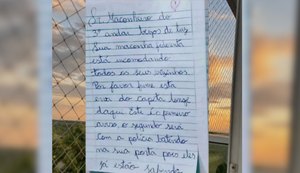 Sr. Maconheiro do
3º andar bloco de luz.
Sua maconha fedorenta
está incomodando
todos os seus vizinhos.
Por favor fume esta
erva do capeta longe
daqui. Este é o primeiro
aviso, o segundo será
com a polícia batendo
na sua porta pois eles
já estão sabendo